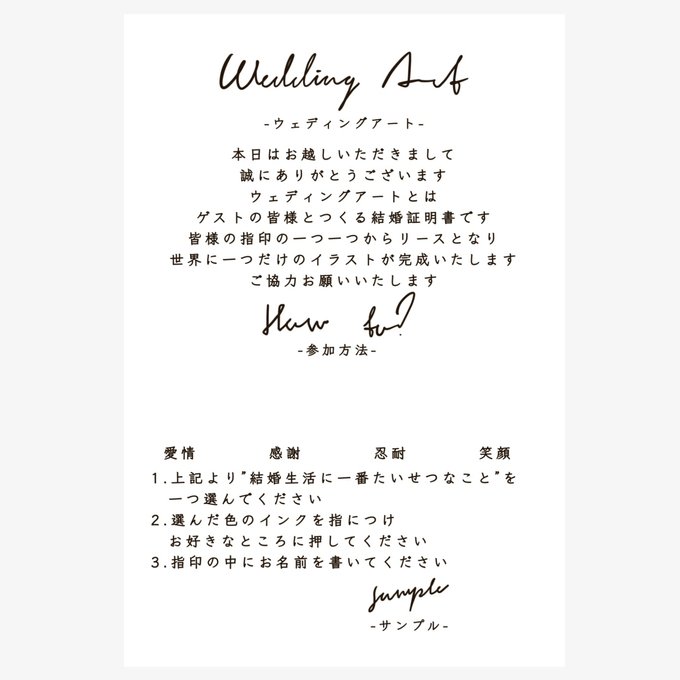 Wedding Art
-ウェディングアート-
本日はお越しいただきまして
誠にありがとうございます
ウェディングアートとは
ゲストの皆様とつくる結婚証明書です
皆様の指印の一つ一つからリースとなり
世界に一つだけのイラストが完成いたします
ご協力お願いいたします
How to?
-参加方法-
愛情 感謝 忍耐 笑顔
1.上記より"結婚生活に一番たいせつなこと"を
一つ選んでください
2.選んだ色のインクを指につけ
お好きなところに押してください
3.指印の中にお名前を書いてください
sample
-サンプル-